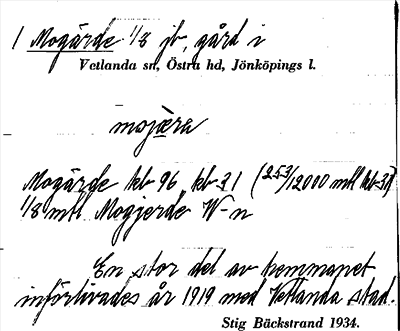 1 Mogärde 1/8 jb, gård i
Vetlanda sn, Östra hd, Jönköpings l.
mojæra
Mogärde kb 96 kb 31 (253/12000 mtl kb 31)
1/8 mtl Mogjerde W-n
En stor del av hemmanet
införlivades år 1919 med Vetlanda stad.
Stig Bäckstrand 1934.